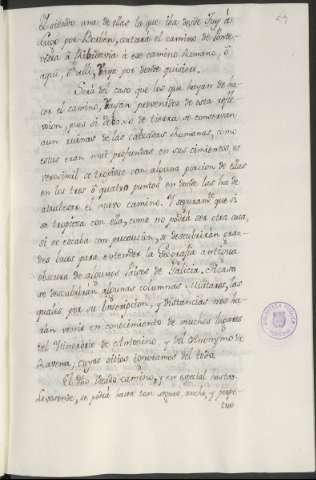 siendo una de ellas la que iba desde Tuy á
Lugo por Bordán, cortará el camino de Ponte-
vedra á Ribadavia á ese camino Romano, ó
aqui, ó alli, vaya por donde quisiere.
Será del caso que los que hayan de ha-
cer el camino, vayan prevenidos de esta refle-
xion, pues si debaxo de tierra se conservan
aun ruinas de las calzadas Romanas, como
estas eran muy profundas en sus cimientos, es
verosimil se tropiece con alguna porcion de ellas
en los tres ó quatro puntos en donde las ha de
atravesar el nuevo camino. Y seguramte que si
se tropieza con ella, como no podrá ser otra cosa,
si se escaba con precaucion, se descubrirán gran-
des luces para entender la Geografia antigua
obscura de algunos sitios de Galicia. Acaso
se descubrirán algunas columnas Militares, las
quales por su Inscripcion, y distancias nos ha-
rian venir en conocimiento de muchos lugares
del Itinerario de Antonino, y del Anonymo de
Ravena, cuyos sitios ignoramos del todo.
El dho camino, y en especial hasta
se podrá hacer tan seguro, ancho, y perpe-
tuo